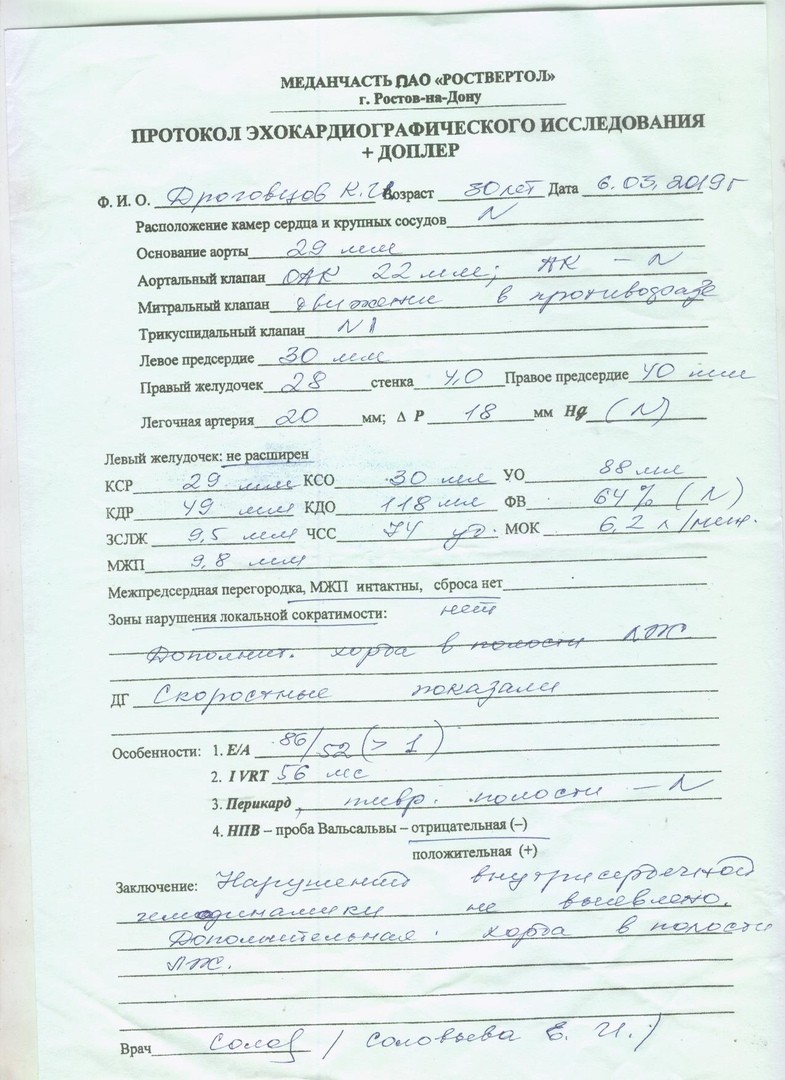 МЕДАНЧАСТЬ ПАО «РОСТВЕРТОЛ»
г. Ростов-на-Дону
ПРОТОКОЛ ЭХОКАРДИОГРАФИЧЕСКОГО ИССЛЕДОВАНИЯ
+ ДОПЛЕР
Ф. И. О. Дроговцов К.И. Возраст 30 лет Дата 6.03.2019 г
Расположение камер сердца и крупных сосудов N
Основание аорты 29 мм
Аортальный клапан ОАК 22 мм; АК – N
Митральный клапан движение в противофазе
Трикуспидальный клапан N
Левое предсердие 30 мм
Правый желудочек 28 стенка 4,0 Правое предсердие 40 мм
Легочная артерия 20 мм; Δ P 18 мм Hg (N)
Левый желудочек: не расширен
КСР 29 мм КСО 30 мл УО 88 мл
КДР 49 мм КДО 118 мл ФВ 64% (N)
ЗСЛЖ 9,5 мм ЧСС 74 уд. МОК 6,2 л/мин.
МЖП 9,8 мм
Межпредсердная перегородка, МЖП интактны, сброса нет
Зоны нарушения локальной сократимости: нет
Дополнит. хорда в полости ЛЖ
ДГ Скоростные показали
Особенности: 1. E/A 86/52 (> 1)
2. I VRT 56 мс
3. Перикард, плевр. полости – N
4. НПВ – проба Вальсальвы – отрицательная (–)
положительная (+)
Заключение: Нарушений внутрисердечной
гемодинамики не выевлено.
Дополнительная хорда в полости
ЛЖ.
Врач / Соловьева Е. И. /